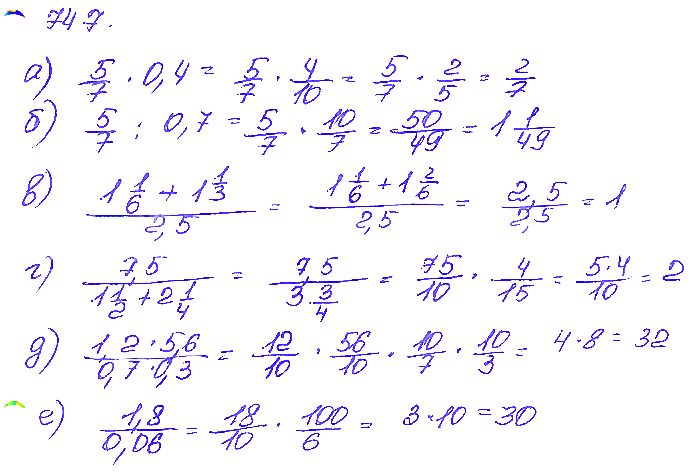 747.
а) 5/7 · 0,4 = 5/7 · 4/10 = 5/7 · 2/5 = 2/7
б) 5/7 : 0,7 = 5/7 · 10/7 = 50/49 = 1 1/49
в) (1 1/6 + 1 1/3)/2,5 = (1 1/6 + 1 2/6)/2,5 = 2,5/2,5 = 1
г) 7,5/(1 1/2 + 2 1/4) = 7,5/(3 3/4) = 75/10 · 4/15 = 5·4/10 = 2
д) (1,2 · 5,6)/(0,7 · 0,3) = 12/10 · 56/10 · 10/7 · 10/3 = 4 · 8 = 32
е) 1,8/0,06 = 18/10 · 100/6 = 3 · 10 = 30